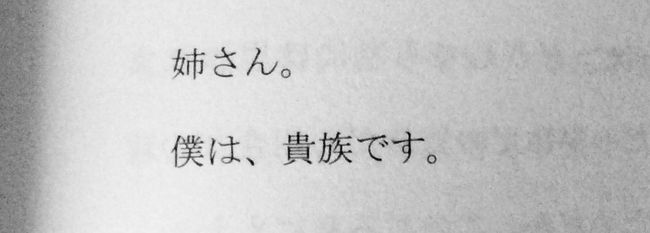 姉さん。
僕は、貴族です。